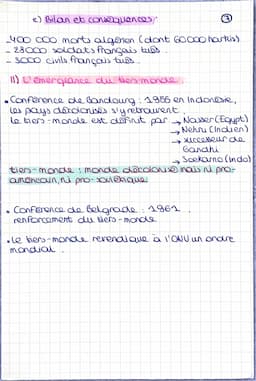 c) Bilan et conséquences:
③
- 400 000 morts algérien (dont 60 000 harkis)
- 28000 soldats français tués.
- 3000 civils français tués.
II) L'émergence du tiers-monde:
• Conférence de Bandoung : 1955 en Indonésie,
les pays décolonisés s'y retrouvent.
Le tiers-monde est définit par → Nasser (Egypt)
→ Nehru (Indien)
→ successeur de
Gandhi
→ Soekarno (Indo)
tiers-monde : monde décolonisé mais ni pro-
américain, ni pro-soviétique.
• Conférence de Belgrade : 1961.
renforcement du tiers-monde
• le tiers-monde revendique à l'ONU un ordre
mondial.